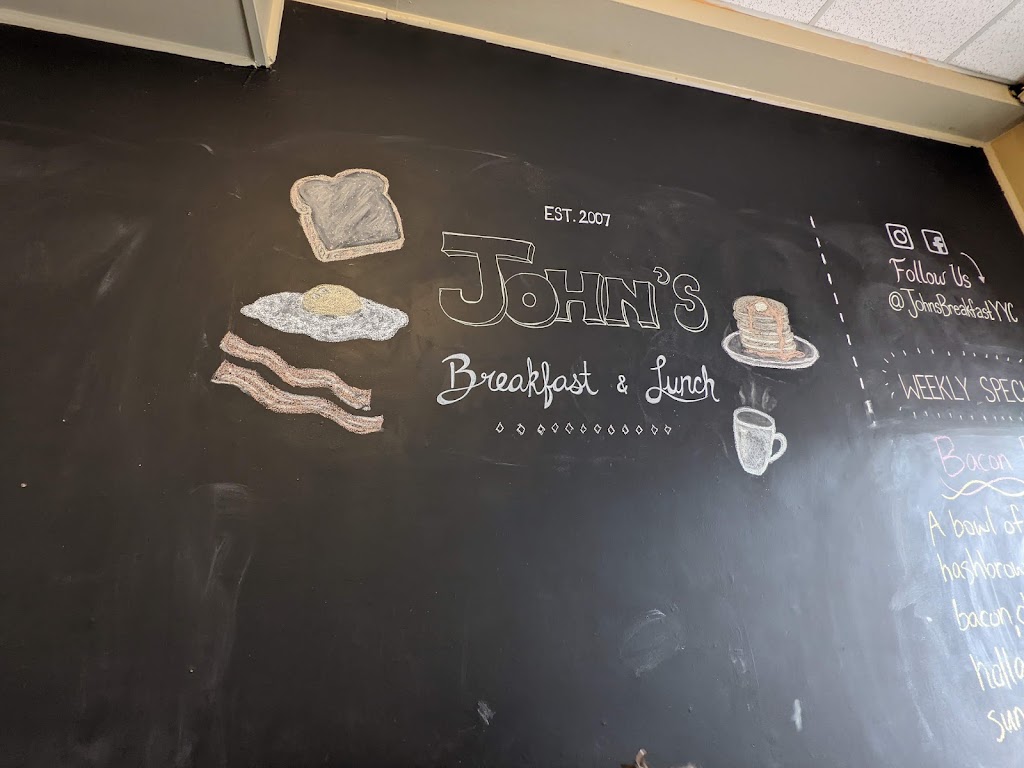 EST. 2007
JOHN'S
Breakfast & Lunch
Follow Us
@JohnsBreakfastYYC
WEEKLY SPECI
Bacon
A bowl of
hashbrow
bacon,
hallo
sun